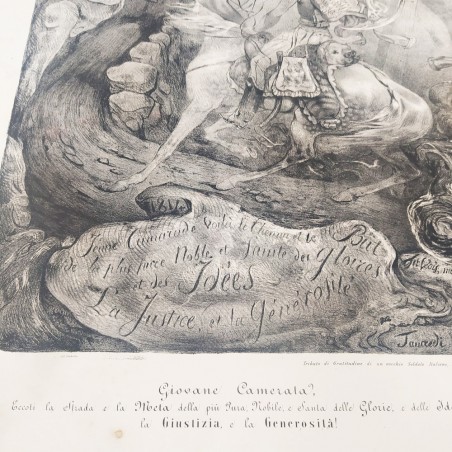 181
Jeune Camarade voilà le Chemin et le But
de la plus pure Noble et Sainte des Gloires
et des Idées
La Justice, et la Générosité
Tancredi
Tributo di Gratitudine di un vecchio Soldato Italiano
Giovane Camerata!,
Eccoti la Strada e la Meta della più Pura, Nobile, e Santa delle Glorie, e delle Ide
la Giustizia, e la Generosità!